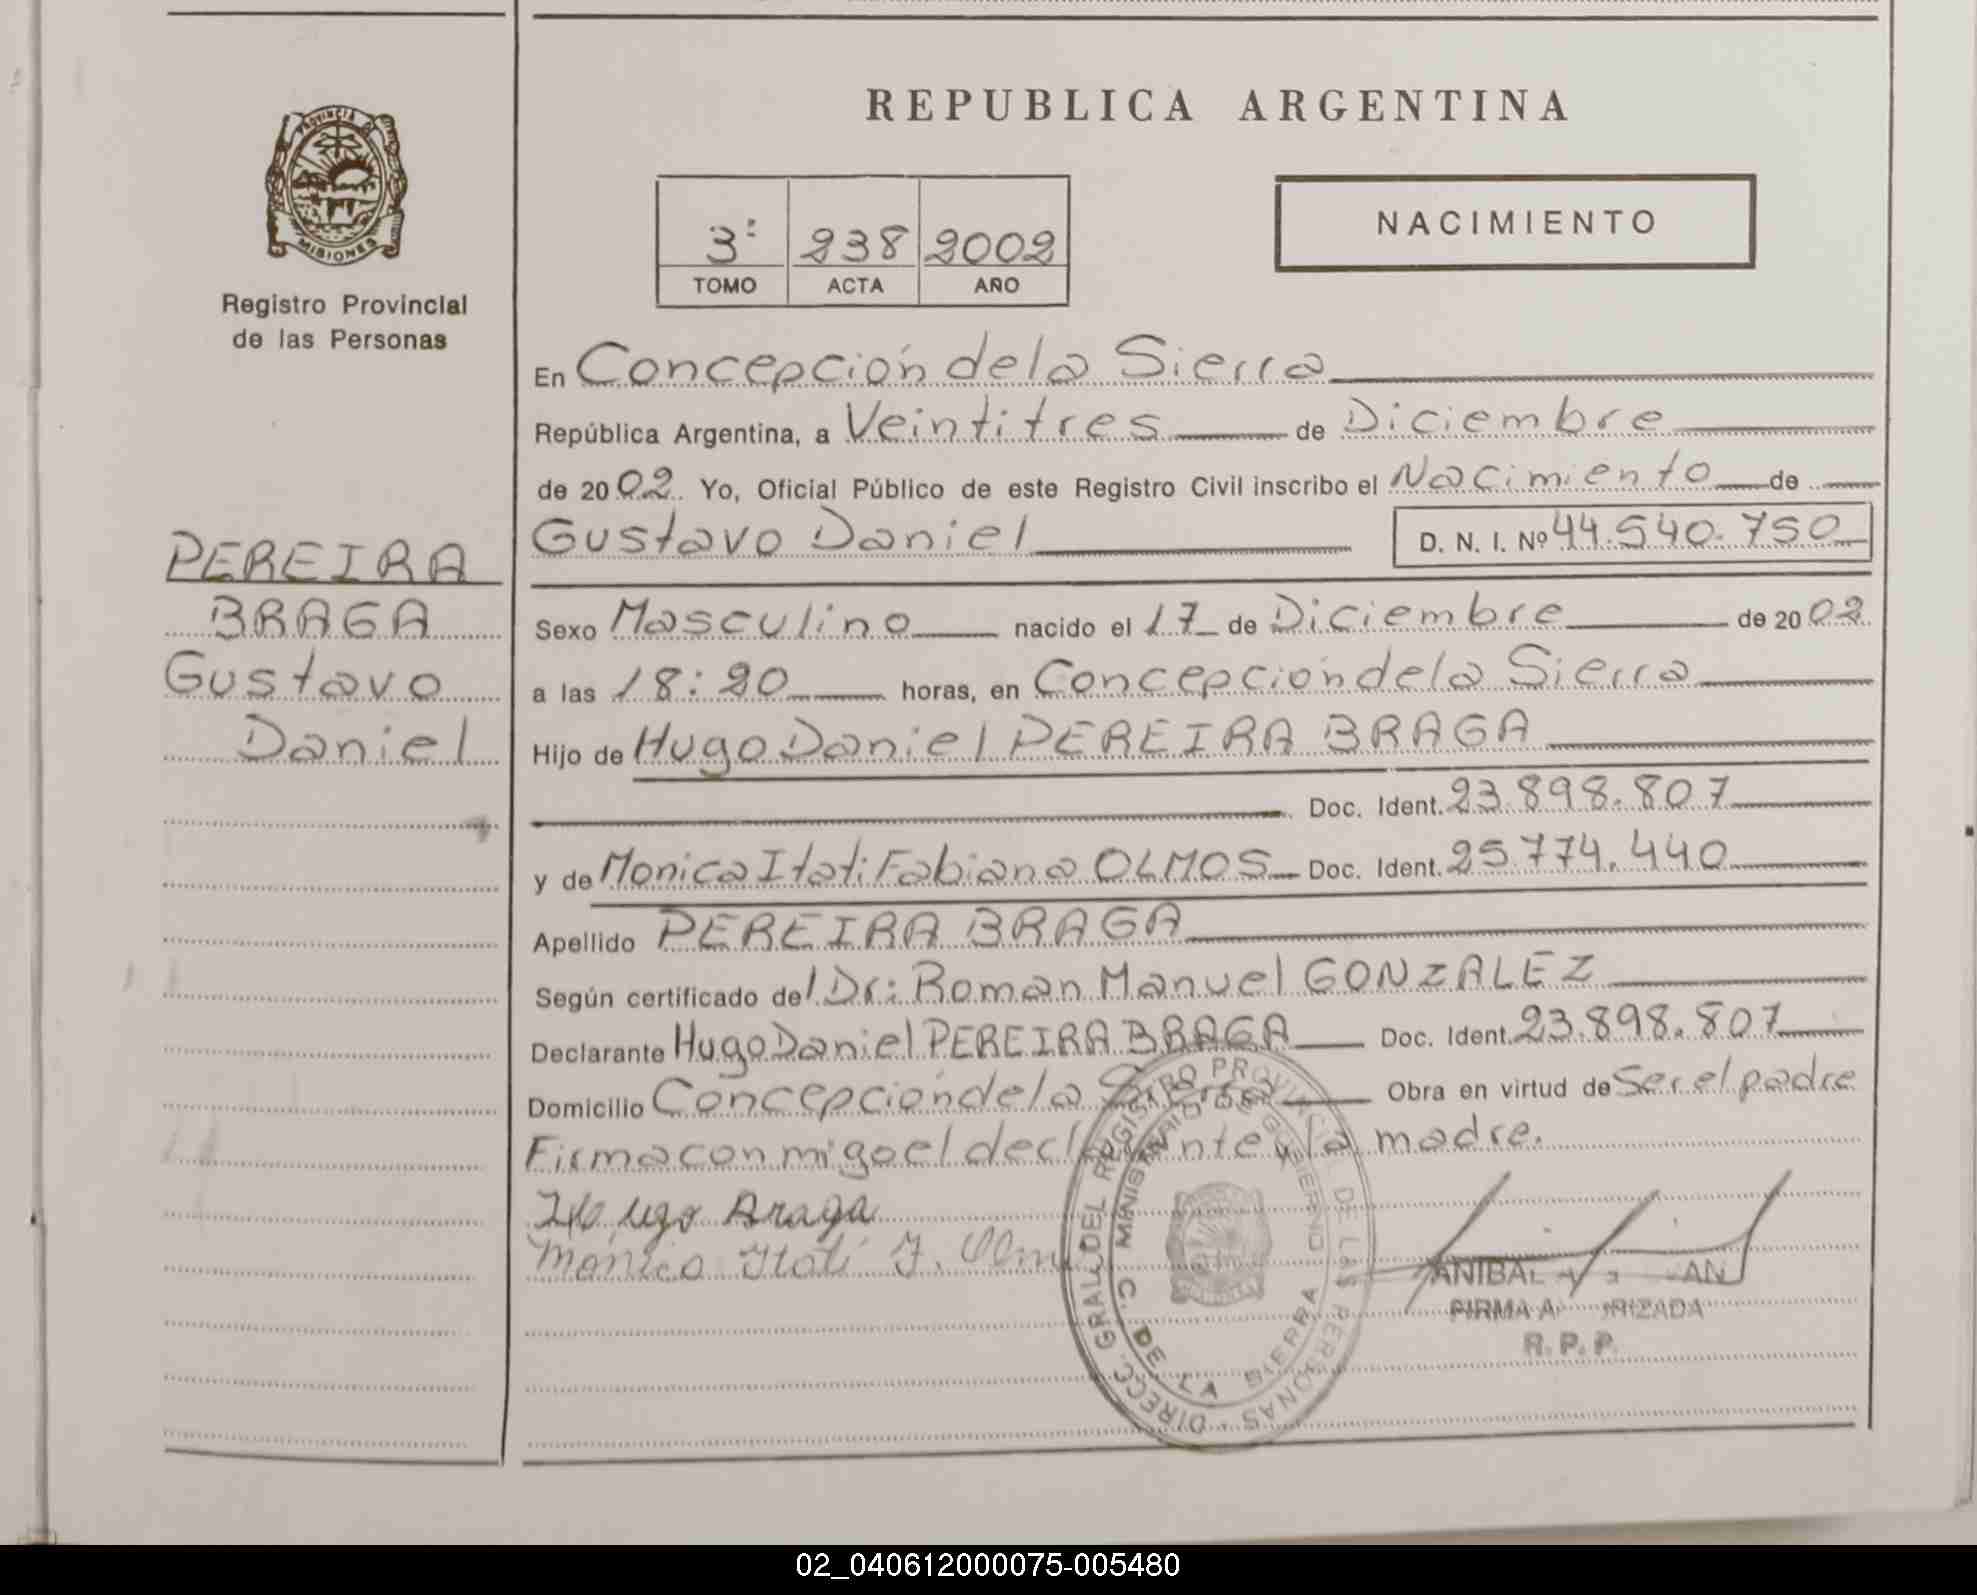 REPUBLICA ARGENTINA
PROVINCIA DE
MISIONES
Registro Provincial
de las Personas
3: 238 2002
TOMO ACTA AÑO
NACIMIENTO
PEREIRA
BRAGA
Gustavo
Daniel
En Concepción de la Sierra
República Argentina, a Veintitres de Diciembre
de 2002. Yo, Oficial Público de este Registro Civil inscribo el Nacimiento de
Gustavo Daniel D. N. I. Nº 44.540.750
Sexo Masculino nacido el 17 de Diciembre de 2002
a las 18:20 horas, en Concepción de la Sierra
Hijo de Hugo Daniel PEREIRA BRAGA
Doc. Ident. 23.898.807
y de Monica Itati Fabiana OLMOS Doc. Ident. 25.774.440
Apellido PEREIRA BRAGA
Según certificado del Dr: Roman Manuel GONZALEZ
Declarante Hugo Daniel PEREIRA BRAGA Doc. Ident. 23.898.807
Domicilio Concepción de la Sierra Obra en virtud de Ser el padre
Firma conmigo el declarante y la madre.
Hugo Braga
Monica Itati F. Olm
DIRECC. GRAL. DEL REGISTRO PROVINCIAL DE LAS PERSONAS
MINISTERIO DE GOBIERNO
C. DE LA SIERRA
ANIBAL
FIRMA
R. P. P.
02_040612000075-005480